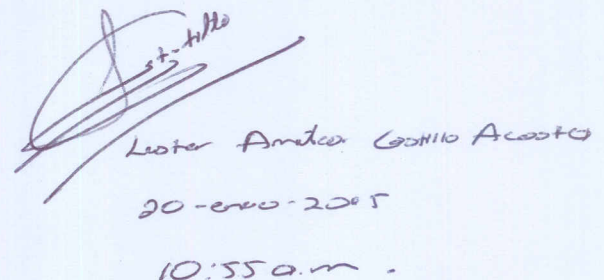 Lester Amilcar Castillo Acosta
20-enero-2015
10:55 a.m.